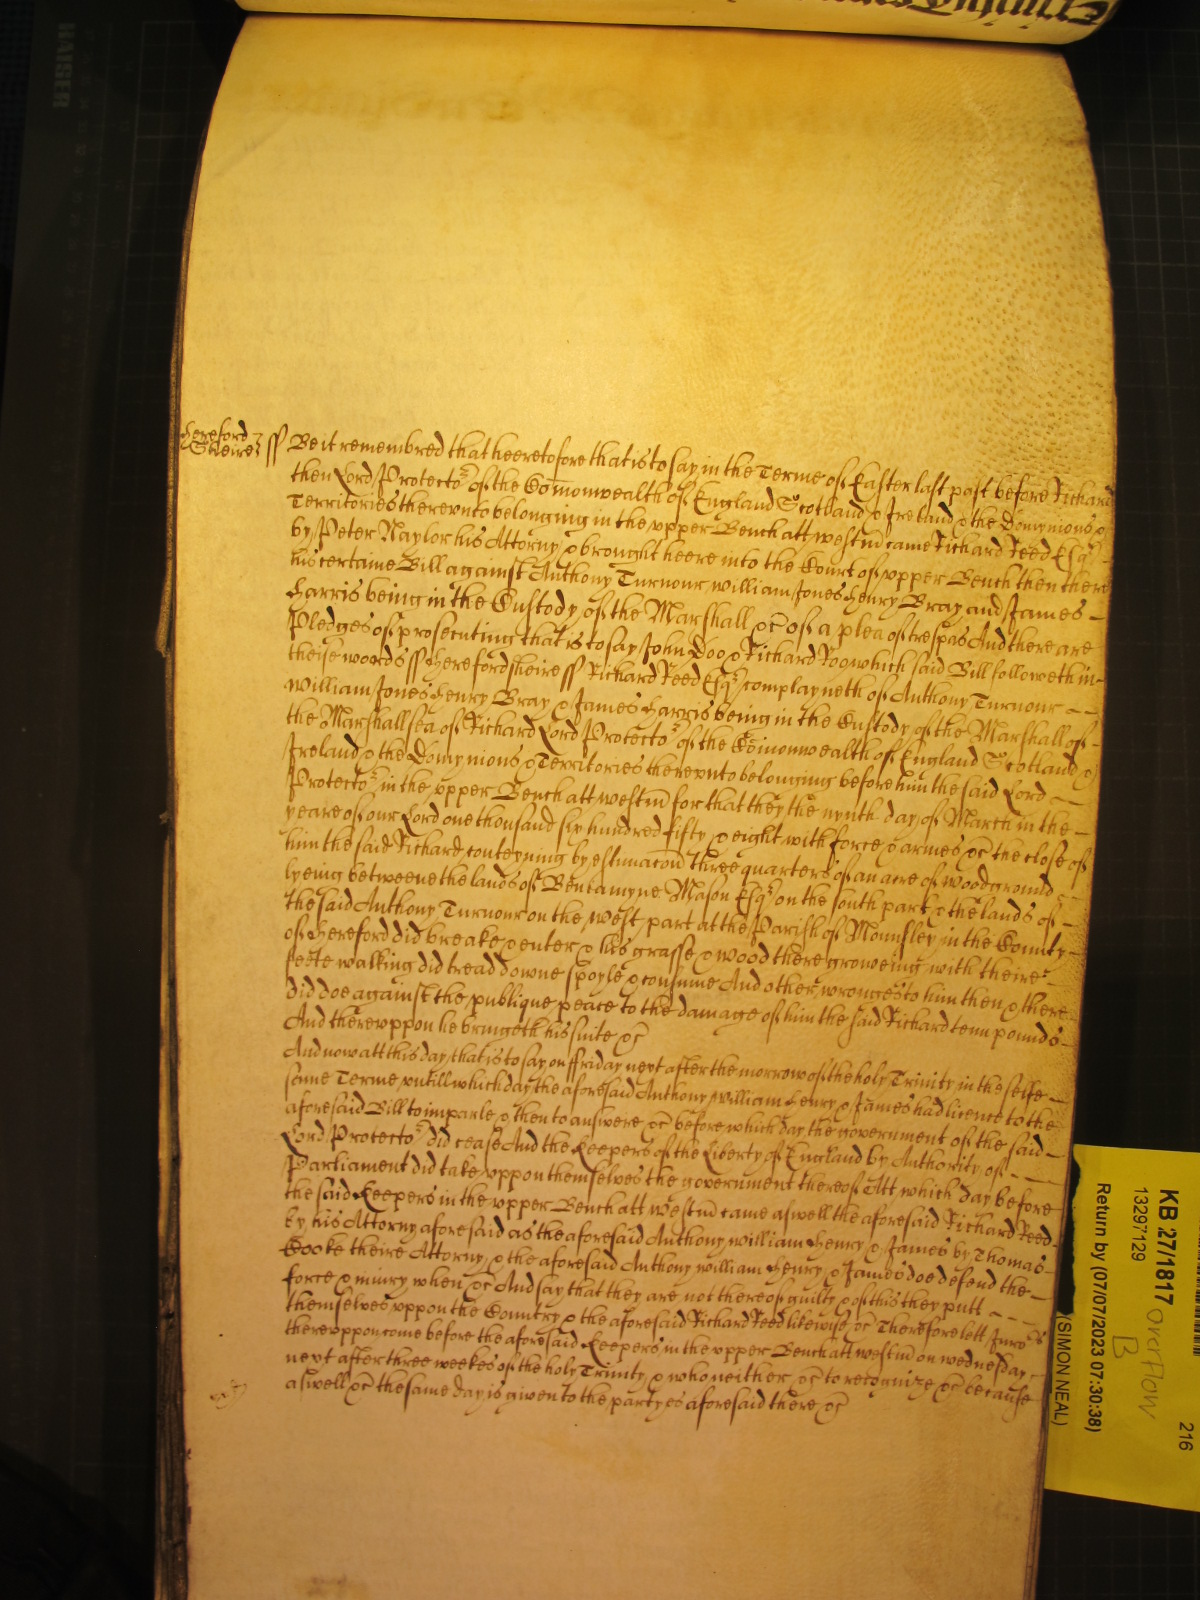 Hereford
Sheire } ss Be it remembred that heeretofore that is to say in the Terme of Easter last past before Richard
then Lord Protector of the Com̄onwealth of England Scotland & Ireland & the Dominyions &
Territories therevnto belonging in the vpper Bench att Westm̄ came Richard Reed Esqr
by Peter Naylor his Attorny & brought heere into the Court of vpper Bench then there
his certaine Bill against Anthony Turnour William Jones Henry Bray and James
Harris being in the Custody of the Marshall &c of a plea of trespas And there are
Pledges of prosecuting that is to say John Doo & Richard Roo which said Bill followeth in
theise words ss Herefordsheire ss Richard Reed Esqr complayneth of Anthony Turnour
William Jones Henry Bray & James Harris being in the Custody of the Marshall of
the Marshallsea of Richard Lord Protector of the Com̄onwealth of England Scotland &
Ireland & the Dominyions & Territories therevnto belonging before him the said Lord
Protector in the vpper Bench att Westm̄ for that they the nynth day of March in the
yeare of our Lord one thousand six hundred fifty & eight with force & armes &c the close of
him the said Richard conteyning by estimacōn three quarters of an acre of woodground
lyeing betweene the lands of Beniamyne Mason Esqr on the south part & the lands of
the said Anthony Turnour on the west part at the Parish of Mounsley in the County
of Hereford did breake & enter & his grasse & wood there groweing with theire
feete walking did tread downe spoyle & consume And other wronges to him then & there
did doe against the publique peace to the damage of him the said Richard tenn pounds
And therevppon he bringeth his suite &c
And now att this day that is to say on ffriday next after the morrow of the holy Trinity in the selfe
same Terme vntill which day the aforesaid Anthony William Henry & James had licence to the
aforesaid Bill to imparle & then to answere &c before which day the government of the said
Lord Protector did cease And the Keepers of the Liberty of England by Authority of
Parliament did take vppon themselves the government thereof Att which day before
the said Keepers in the vpper Bench att Westm̄ came aswell the aforesaid Richard Reed
by his Attorny aforesaid as the aforesaid Anthony William Henry & James by Thomas
Cooke theire Attorny & the aforesaid Anthony William Henry & James doe defend the
force & iniury when &c And say that they are not thereof guilty & of this they putt
themselves vppon the Country & the aforesaid Richard Reed likewise &c Therefore lett Jurors
therevppon come before the aforesaid Keepers in the vpper Bench att Westm̄ on wednesday
next after three weekes of the holy Trinity & who neither &c to recognize &c because
aswell &c the same day is given to the partyes aforesaid there &c
KB 27/1817
13297129
Return by (07/07/2023 07:30:38)
(SIMON NEAL)
overflow
B
216
HAISER